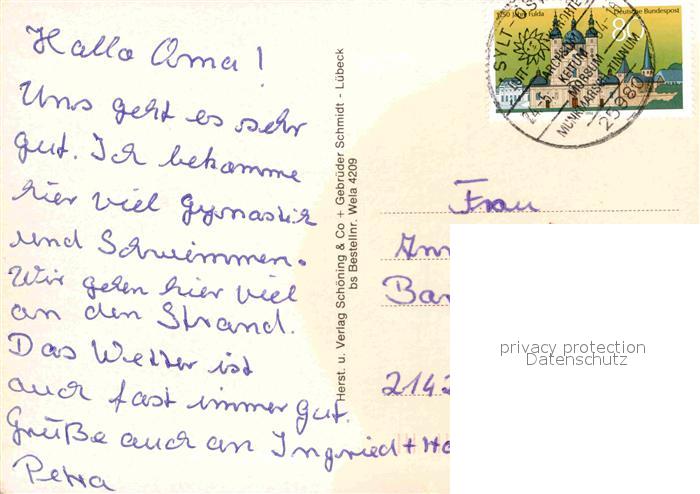 Hallo Oma!
Uns geht es sehr
gut. Ich bekomme
hier viel Gymnastik
und Schwimmen.
Wir gehen hier viel
an den Strand.
Das Wetter ist
auch fast immer gut.
Grüße auch an Ingried + Ha
Petra
Herst. u. Verlag Schöning & Co + Gebrüder Schmidt - Lübeck
bs Bestellnr. Wela 4209
1250 Jahre Fulda
Deutsche Bundespost
80
SYLT-OST
ARCHSUM
KEITUM
MORSUM
MUNKMARSCH TINNUM
Frau
Ann
Bar
2142
privacy protection
Datenschutz